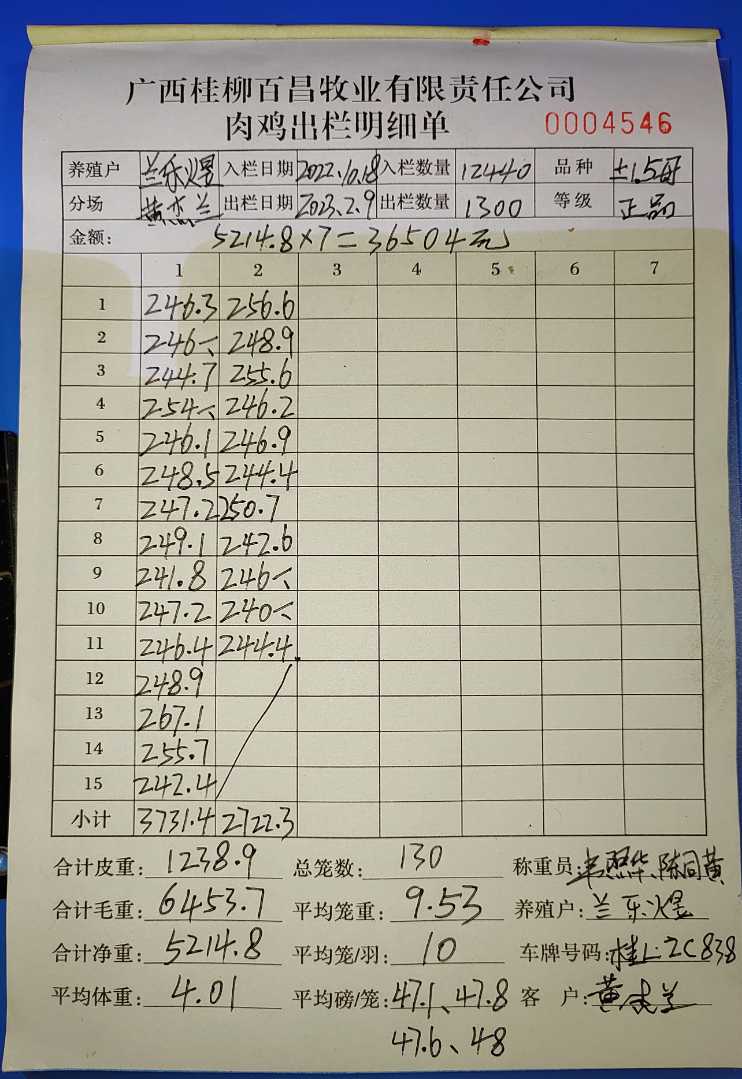 广西桂柳百昌牧业有限责任公司
肉鸡出栏明细单 0004546
养殖户 兰乐煜 入栏日期 2022.10.18 入栏数量 12440 品种 土1.5母
分场 出栏日期 2023.2.9 出栏数量 1300 等级 正品
金额: 5214.8×7=36504元
1 2 3 4 5 6 7
1 246.3 256.6
2 246 248.9
3 244.7 255.6
4 254 246.2
5 246.1 246.9
6 248.5 244.4
7 247.2 250.7
8 249.1 242.6
9 241.8 246
10 247.2 240
11 246.4 244.4
12 248.9
13 267.1
14 255.7
15 242.4
小计 3731.4 2722.3
合计皮重: 1238.9 总笼数: 130 称重员: 韦照华、陈同黄
合计毛重: 6453.7 平均笼重: 9.53 养殖户: 兰乐煜
合计净重: 5214.8 平均笼/羽: 10 车牌号码: 桂L·ZC838
平均体重: 4.01 平均磅/笼: 47.1、47.8 客户:
47.6、48